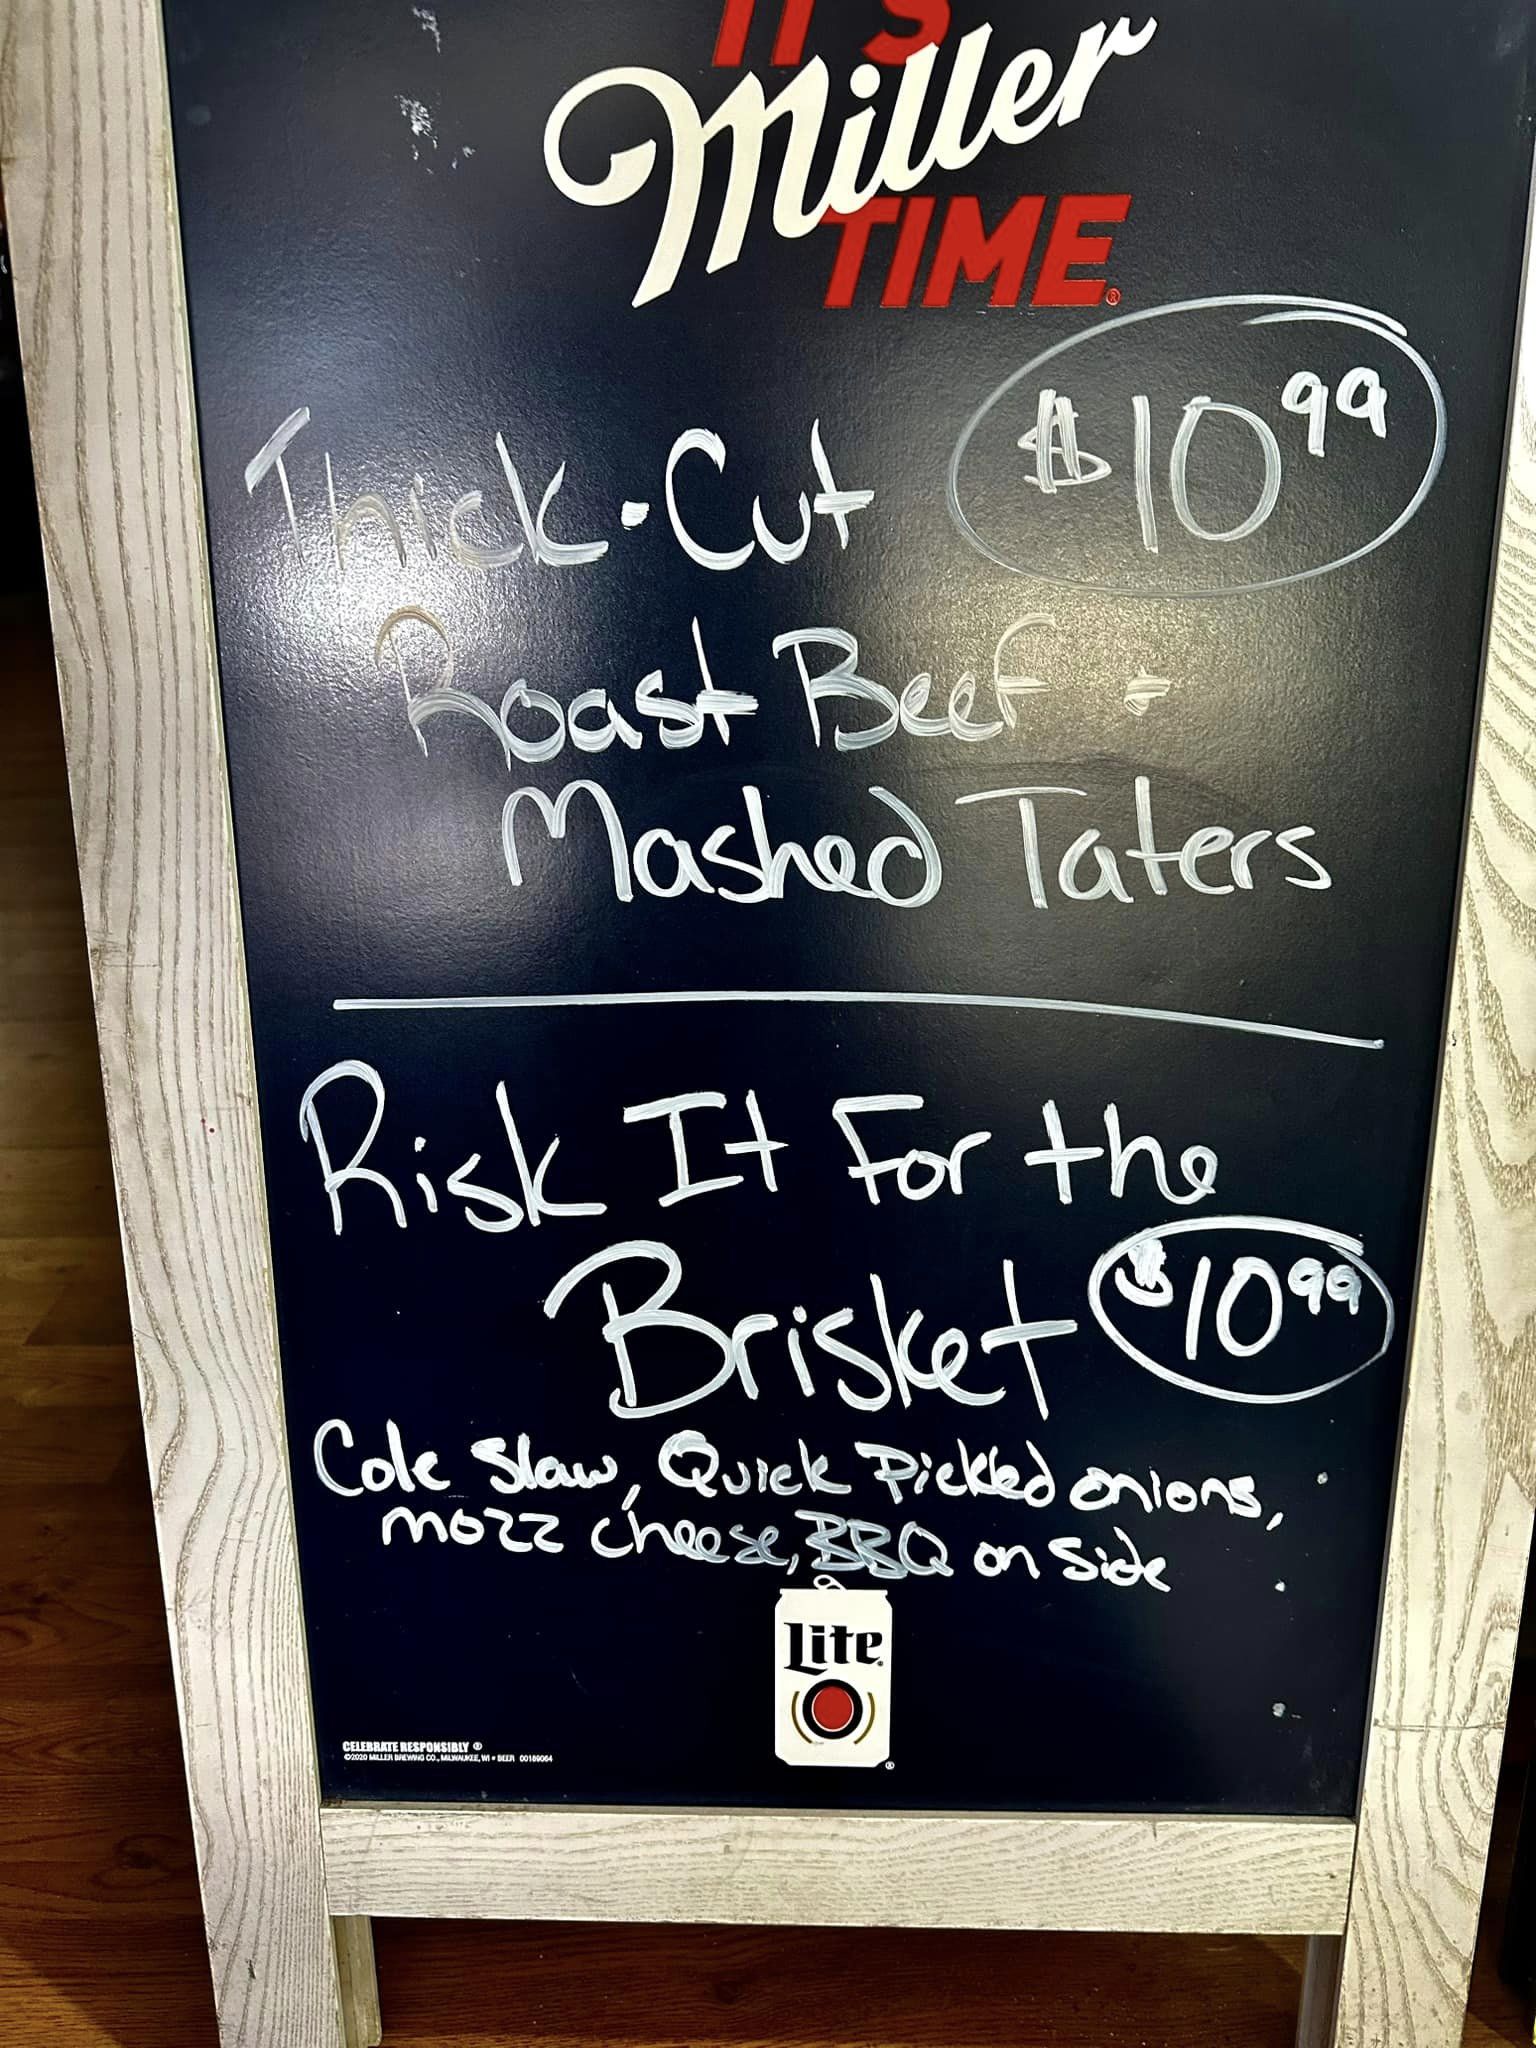 IT'S
Miller
TIME®
$10 99
Thick-Cut
Roast Beef +
Mashed Taters
Risk It For the
Brisket $10 99
Cole Slaw, Quick Pickled onions,
mozz cheese, BBQ on side
Lite®
CELEBRATE RESPONSIBLY ®
©2020 MILLER BREWING CO., MILWAUKEE, WI • BEER 00189064